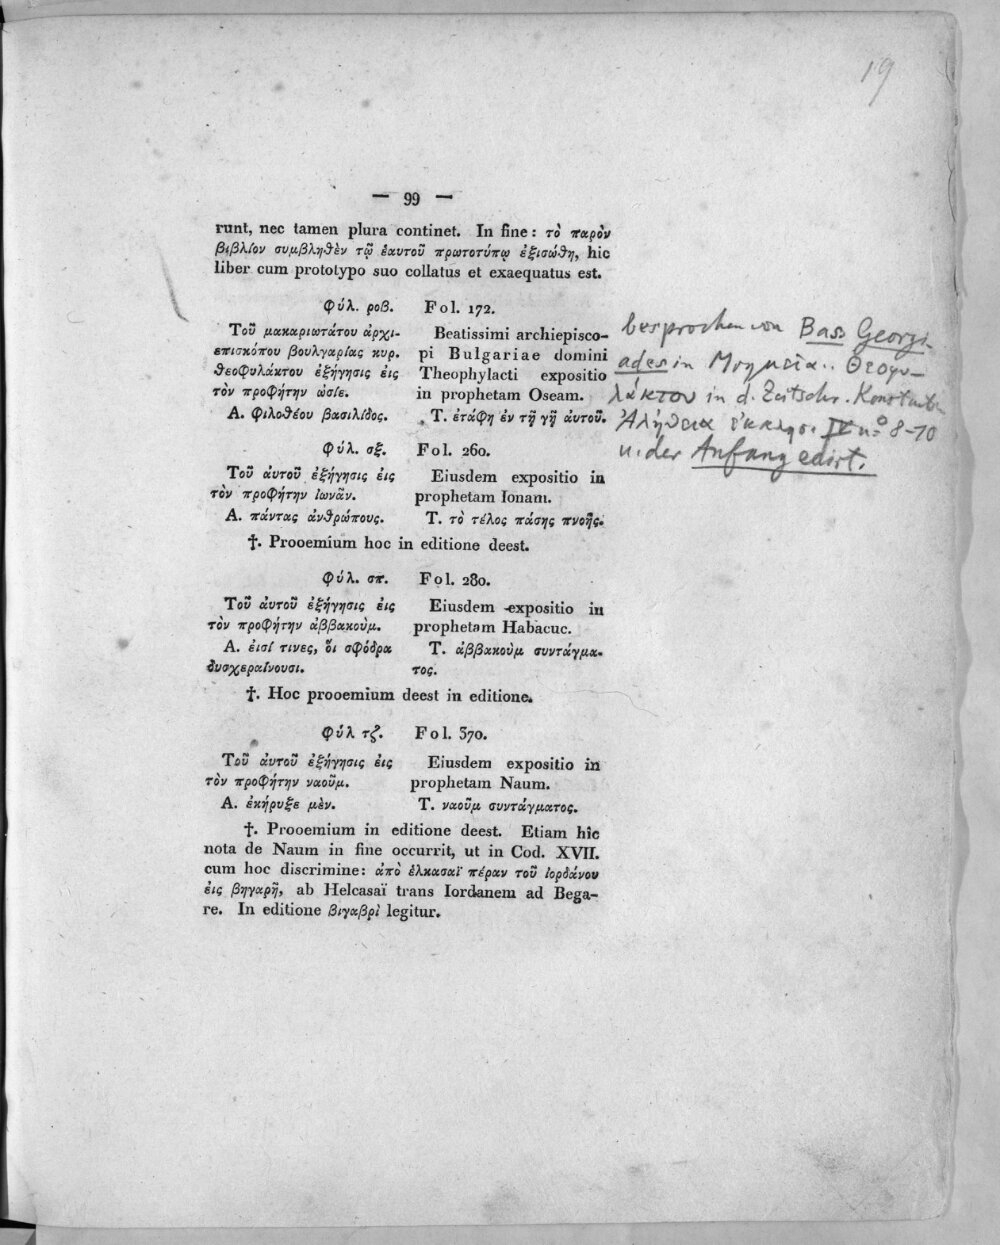 19
— 99 —
runt, nec tamen plura continet. In fine: τὸ παρὸν
βιβλίον συμβληθὲν τῷ ἑαυτοῦ πρωτοτύπῳ ἐξισώθη, hic
liber cum prototypo suo collatus et exaequatus est.
Φύλ. ροβ. Fol. 172.
Τοῦ μακαριωτάτου ἀρχι-
επισκόπου βουλγαρίας κυρ.
θεοφυλάκτου ἐξήγησις εἰς
τὸν προφήτην ὡσῖε.
Α. φιλοθέου βασιλίδος.
Beatissimi archiepisco-
pi Bulgariae domini
Theophylacti expositio
in prophetam Oseam.
Τ. ἐτάφη ἐν τῇ γῇ αὐτοῦ.
besprochen von Bas. Georgi-
ades in Μνημεῖα.. Θεοφυ-
λάκτου in d. Zeitschr.
Ἀλήθεια ἐκκλησ. IV no 8-10
u. der Anfang edirt.
Φύλ. σξ. Fol. 260.
Τοῦ ἀυτοῦ ἐξήγησις ἐις
τὸν προφήτην ἰωνᾶν.
Α. πάντας ἀνθρώπους.
Eiusdem expositio in
prophetam Ionam.
Τ. τὸ τέλος πάσης πνοῆς.
†. Prooemium hoc in editione deest.
Φύλ. σπ. Fol. 280.
Τοῦ ἀυτοῦ ἐξήγησις ἐις
τὸν προφήτην ἀββακοὺμ.
Α. ἐισί τινες, ὃι σφόδρα
δυσχεραίνουσι.
Eiusdem expositio in
prophetam Habacuc.
Τ. ἀββακοὺμ συντάγμα-
τος.
†. Hoc prooemium deest in editione.
Φύλ τζ. Fol. 370.
Τοῦ ἀυτοῦ ἐξήγησις ἐις
τὸν προφήτην ναοῦμ.
Α. ἐκήρυξε μὲν.
Eiusdem expositio in
prophetam Naum.
Τ. ναοῦμ συντάγματος.
†. Prooemium in editione deest. Etiam hic
nota de Naum in fine occurrit, ut in Cod. XVII.
cum hoc discrimine: ἀπὸ ἑλκασαῒ πέραν τοῦ ἰορδάνου
εἰς βηγαρῆ, ab Helcasaï trans Iordanem ad Bega-
re. In editione βιγαβρὶ legitur.